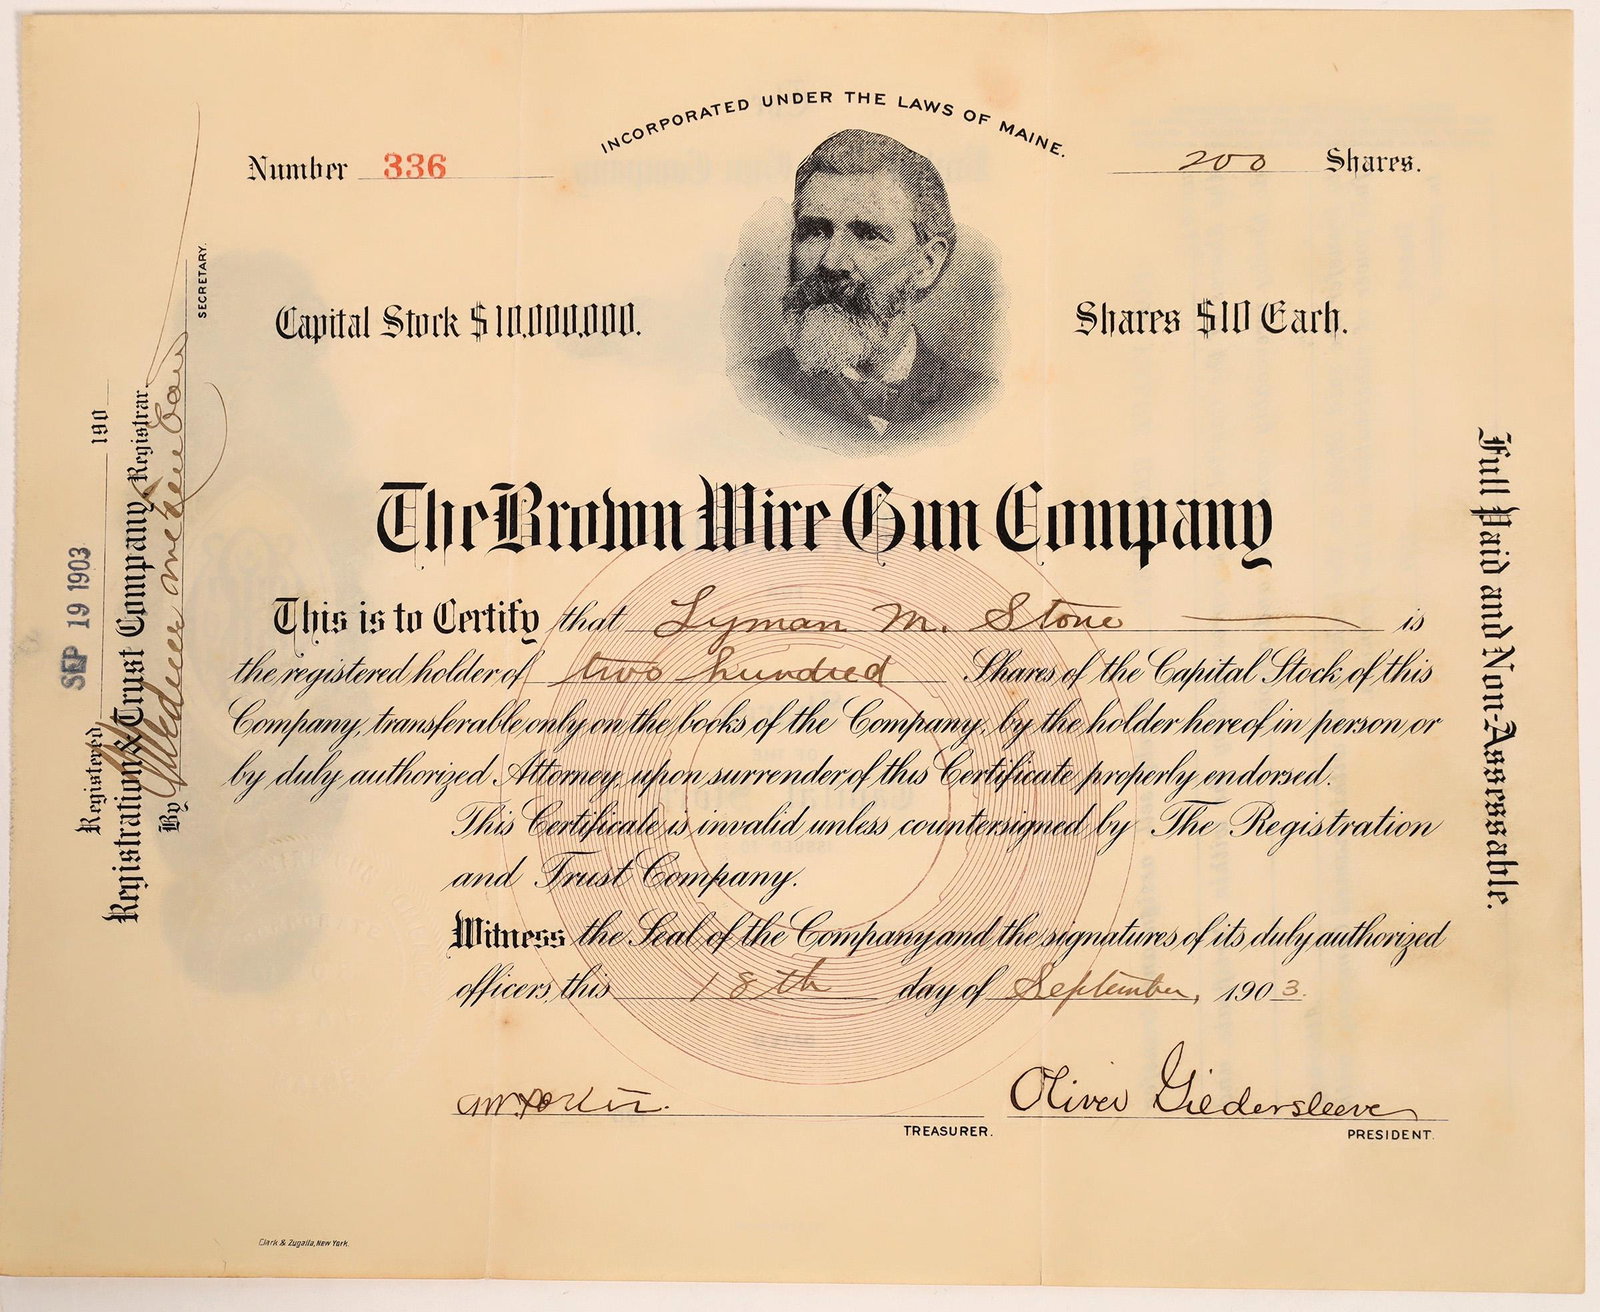 INCORPORATED UNDER THE LAWS OF MAINE.
Number 336
200 Shares.
Capital Stock $10,000,000.
Shares $10 Each.
The Brown Wire Gun Company
This is to Certify that Lyman M. Stone is
the registered holder of two hundred Shares of the Capital Stock of this
Company, transferable only on the books of the Company, by the holder hereof in person or
by duly authorized Attorney, upon surrender of this Certificate properly endorsed.
This Certificate is invalid unless countersigned by The Registration
and Trust Company.
Witness the Seal of the Company and the signatures of its duly authorized
officers, this 18th day of September, 1903.
Oliver Gildersleeve
TREASURER.
PRESIDENT.
Clark & Zugalla, New York.
Registered SEP 19 1903 190
Registration & Trust Company, Registrar.
By
SECRETARY.
Full Paid and Non-Assessable.